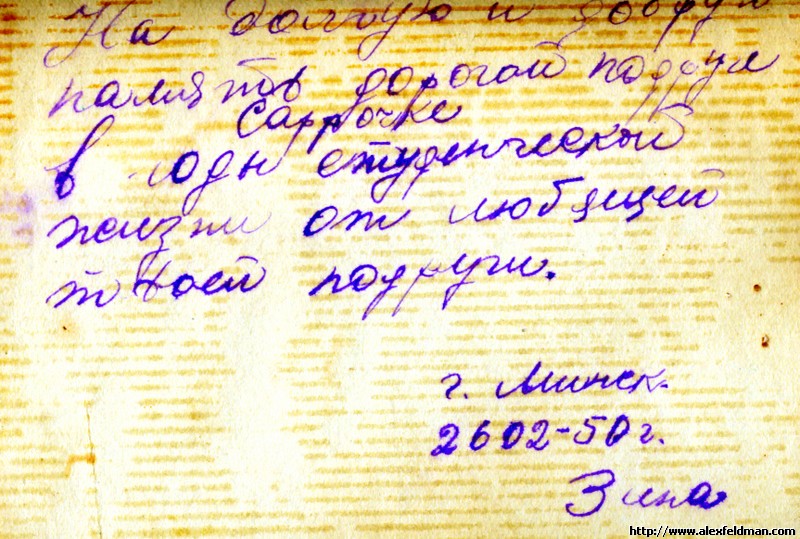 На долгую и добрую
память дорогой подруге
Саррочке
в годы студенческой
жизни от любящей
твоей подруги.
г. Минск.
2602-50 г.
Зина
http://www.alexfeldman.com